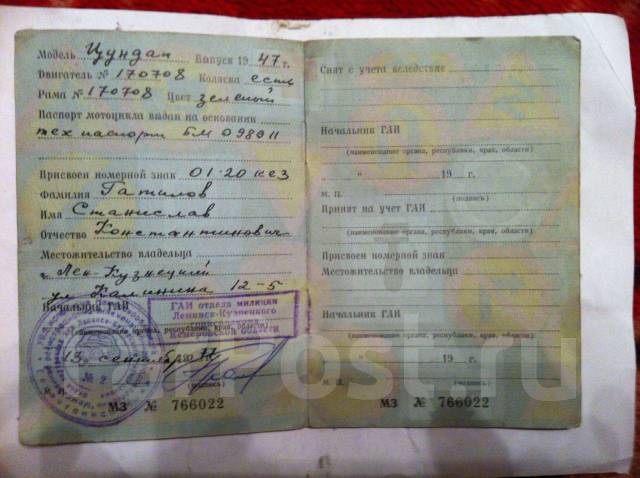 Модель Цундап Выпуск 1947 г.
Двигатель № 170708 Коляска есть
Рама № 170708 Цвет зеленый
Паспорт мотоцикла выдан на основании
тех паспорт БМ 098911
Присвоен номерной знак 01-20 кез
Фамилия Гатилов
Имя Станислав
Отчество Константинович
Местожительство владельца
г. Лен-Кузнецкий
ул Калинина 12-5
Начальник ГАИ
ГАИ отдела милиции
Ленинск-Кузнецкого
Кемеровской области
(наименование органа, республики, края, области)
13 сентября
№ 2
(подпись)
МЗ № 766022
Снят с учета вследствие
Начальник ГАИ
(наименование органа, республики, края, области)
" " 19 г.
М. П. (подпись)
Принят на учет ГАИ
(наименование органа, республики, края, области)
Присвоен номерной знак
Местожительство владельца
Начальник ГАИ
(наименование органа, республики, края, области)
" " 19 г.
М. П. (подпись)
МЗ № 766022